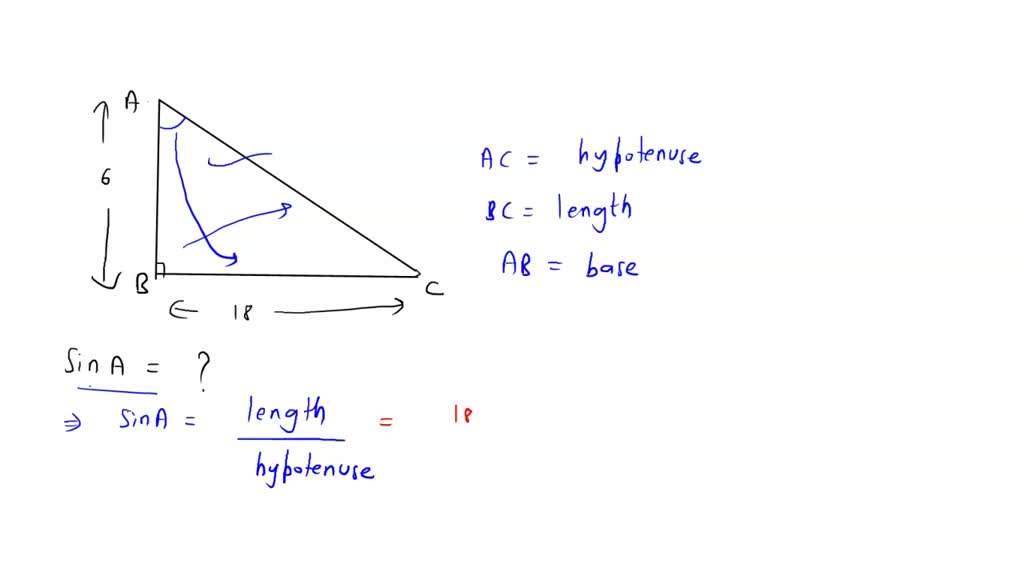 A
6
B
C
18
AC = hypotenuse
BC = length
AB = base
Sin A = ?
⇒ Sin A = length / hypotenuse = 18